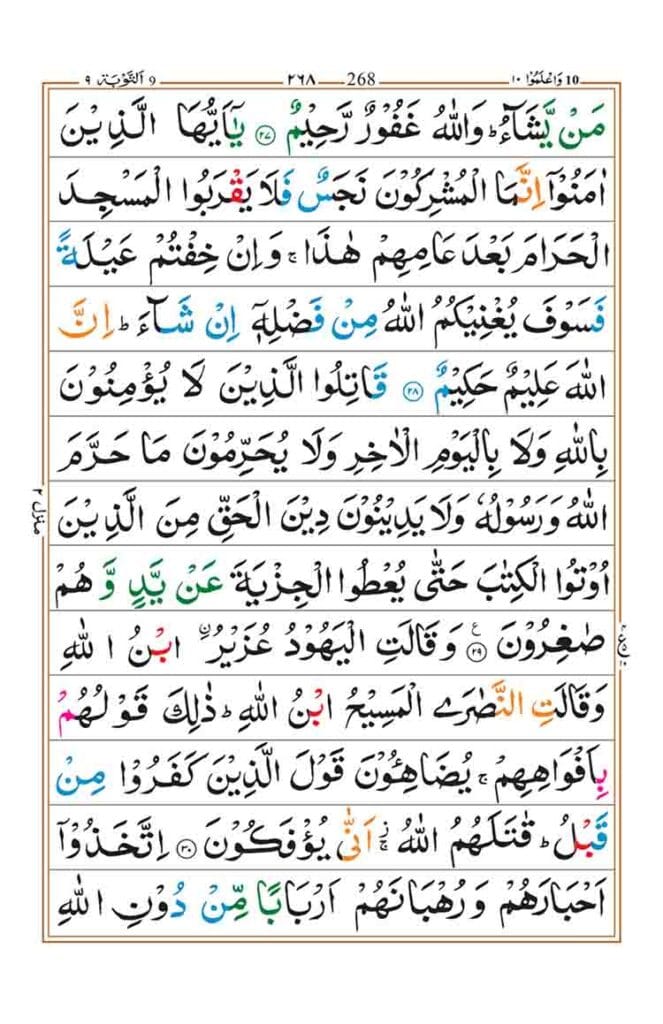 10 وَاعْلَمُوْٓا ١٠ 268 ٢٦٨ 9 اَلتَّوْبَة ٩
مَنْ يَّشَآءُ ؕ وَاللّٰهُ غَفُوْرٌ رَّحِيْمٌ ﴿٢٧﴾ يٰۤاَيُّهَا الَّذِيْنَ
اٰمَنُوْۤا اِنَّمَا الْمُشْرِكُوْنَ نَجَسٌ فَلَا يَقْرَبُوا الْمَسْجِدَ
الْحَرَامَ بَعْدَ عَامِهِمْ هٰذَا ۚ وَاِنْ خِفْتُمْ عَيْلَةً
فَسَوْفَ يُغْنِيْكُمُ اللّٰهُ مِنْ فَضْلِهٖۤ اِنْ شَآءَ ؕ اِنَّ
اللّٰهَ عَلِيْمٌ حَكِيْمٌ ﴿٢٨﴾ قَاتِلُوا الَّذِيْنَ لَا يُؤْمِنُوْنَ
بِاللّٰهِ وَلَا بِالْيَوْمِ الْاٰخِرِ وَلَا يُحَرِّمُوْنَ مَا حَرَّمَ
اللّٰهُ وَرَسُوْلُهٗ وَلَا يَدِيْنُوْنَ دِيْنَ الْحَقِّ مِنَ الَّذِيْنَ
اُوْتُوا الْكِتٰبَ حَتّٰى يُعْطُوا الْجِزْيَةَ عَنْ يَّدٍ وَّ هُمْ
صٰغِرُوْنَ ﴿٢٩﴾ ع وَقَالَتِ الْيَهُوْدُ عُزَيْرُ ۨ ابْنُ اللّٰهِ
وَقَالَتِ النَّصٰرَى الْمَسِيْحُ ابْنُ اللّٰهِ ؕ ذٰلِكَ قَوْلُهُمْ
بِاَفْوَاهِهِمْ ۚ يُضَاهِئُوْنَ قَوْلَ الَّذِيْنَ كَفَرُوْا مِنْ
قَبْلُ ؕ قٰتَلَهُمُ اللّٰهُ ۚ اَنّٰى يُؤْفَكُوْنَ ﴿٣٠﴾ اِتَّخَذُوْۤا
اَحْبَارَهُمْ وَرُهْبَانَهُمْ اَرْبَابًا مِّنْ دُوْنِ اللّٰهِ
منزل ٢